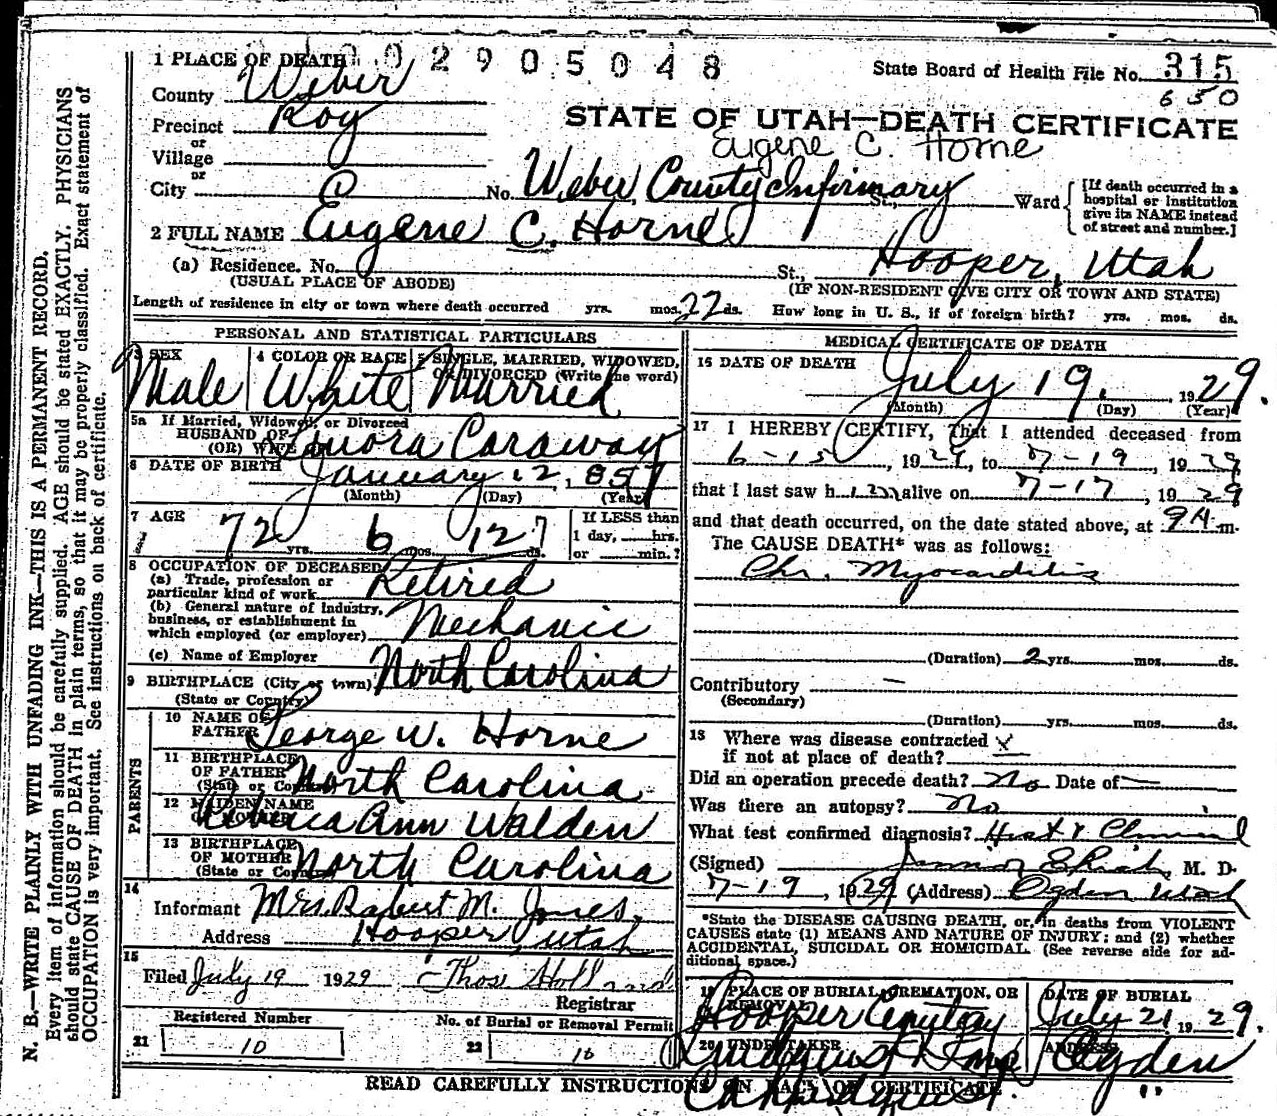 002905048
1 PLACE OF DEATH
State Board of Health File No. 315
County Weber
650
Precinct Roy
STATE OF UTAH—DEATH CERTIFICATE
or
Village
Eugene C. Horne
or
City No. Weber County Infirmary St., Ward
[If death occurred in a
hospital or institution
give its NAME instead
of street and number.]
2 FULL NAME Eugene C. Horne
(a) Residence. No. St., Hooper, Utah
(USUAL PLACE OF ABODE) (IF NON-RESIDENT GIVE CITY OR TOWN AND STATE)
Length of residence in city or town where death occurred yrs. mos. 22 ds. How long in U. S., if of foreign birth? yrs. mos. ds.
PERSONAL AND STATISTICAL PARTICULARS
3 SEX 4 COLOR OR RACE 5 SINGLE, MARRIED, WIDOWED,
OR DIVORCED (Write the word)
Male White Married
5a If Married, Widowed, or Divorced
HUSBAND OF
(OR) WIFE OF Caraway
6 DATE OF BIRTH January 12, 1857
(Month) (Day) (Year)
7 AGE 72 yrs. 6 mos. 7 ds.
If LESS than
1 day, hrs.
or min.?
8 OCCUPATION OF DECEASED
(a) Trade, profession or
particular kind of work Retired
(b) General nature of Industry,
business, or establishment in
which employed (or employer) Mechanic
(c) Name of Employer
9 BIRTHPLACE (City or town) North Carolina
(State or Country)
PARENTS
10 NAME OF
FATHER George W. Horne
11 BIRTHPLACE
OF FATHER
(State or Country) North Carolina
12 MAIDEN NAME
OF MOTHER Ann Walden
13 BIRTHPLACE
OF MOTHER
(State or Country) North Carolina
14
Informant Mrs. Robert M. Jones,
Address Hooper, Utah
15
Filed July 19 1929 Thos Holland
Registrar
Registered Number No. of Burial or Removal Permit
21 10 22 10
MEDICAL CERTIFICATE OF DEATH
16 DATE OF DEATH July 19, 1929.
(Month) (Day) (Year)
17 I HEREBY CERTIFY, That I attended deceased from
6-15, 1929, to 7-19, 1929,
that I last saw him alive on 7-17, 1929
and that death occurred, on the date stated above, at 9 A m.
The CAUSE DEATH* was as follows:
Chr. Myocarditis
(Duration) 2 yrs. mos. ds.
Contributory —
(Secondary)
(Duration) yrs. mos. ds.
18 Where was disease contracted
if not at place of death? x
Did an operation precede death? No Date of —
Was there an autopsy? No
What test confirmed diagnosis?
(Signed) Junior E Rich, M. D.
7-19, 1929 (Address) Ogden Utah
*State the DISEASE CAUSING DEATH, or, in deaths from VIOLENT
CAUSES state (1) MEANS AND NATURE OF INJURY; and (2) whether
ACCIDENTAL, SUICIDAL OR HOMICIDAL. (See reverse side for ad-
ditional space.)
19 PLACE OF BURIAL, CREMATION, OR
REMOVAL
DATE OF BURIAL
Hooper Cemetery July 21 1929.
20 UNDERTAKER ADDRESS
Ogden
READ CAREFULLY INSTRUCTIONS ON BACK OF CERTIFICATE
N. B.—WRITE PLAINLY WITH UNFADING INK—THIS IS A PERMANENT RECORD.
Every item of information should be carefully supplied. AGE should be stated EXACTLY. PHYSICIANS
should state CAUSE OF DEATH in plain terms, so that it may be properly classified. Exact statement of
OCCUPATION is very important. See instructions on back of certificate.